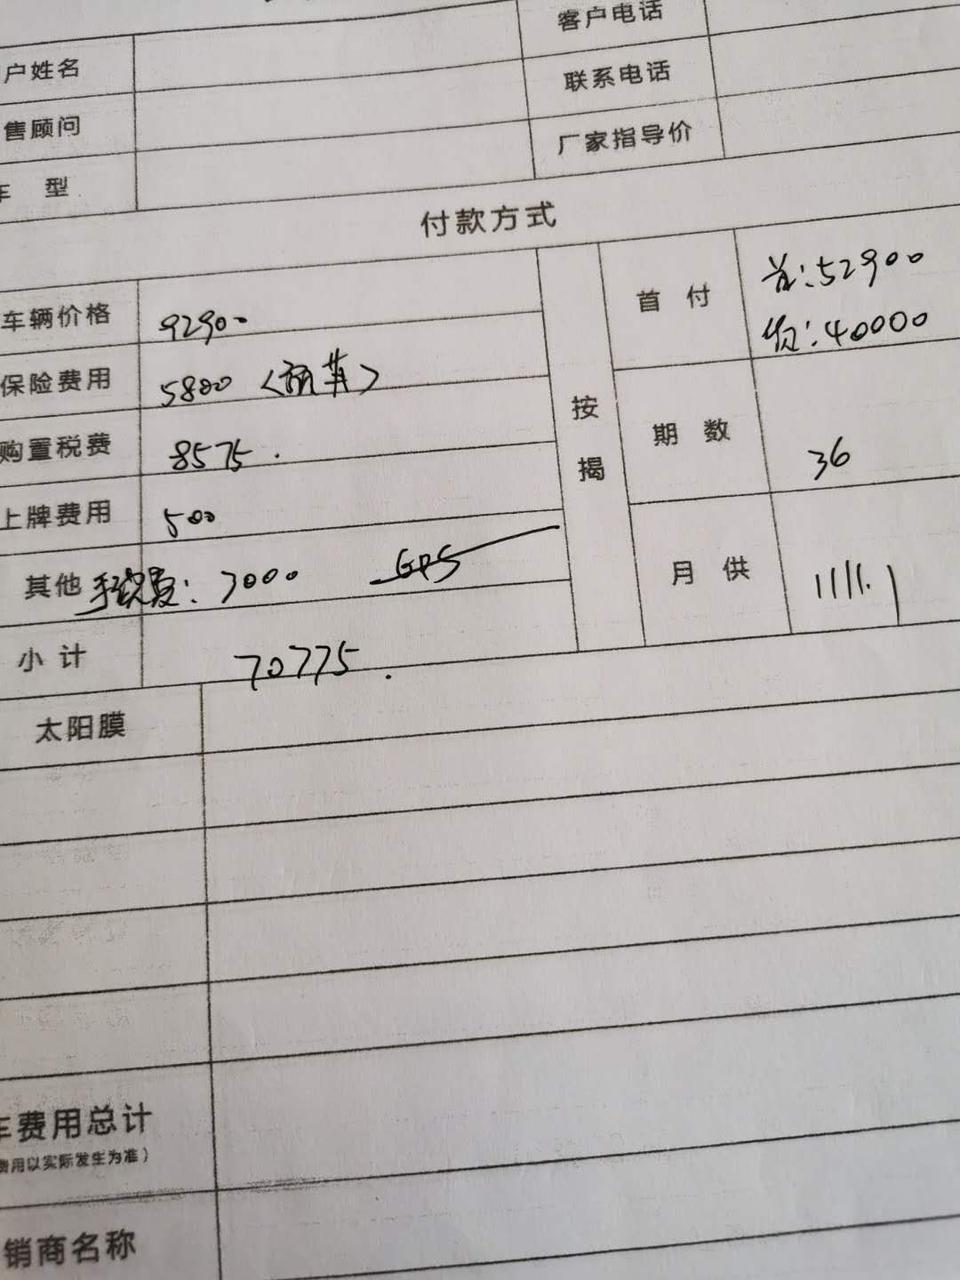 客户电话
户姓名
联系电话
售顾问
厂家指导价
车 型
付款方式
车辆价格 92900
保险费用 5800
购置税费 8575.
上牌费用 500
其他 手续费: 3000 GPS
小 计 70775.
按揭
首 付 首:52900
贷:40000
期 数 36
月 供 1111.1
太阳膜
车费用总计
费用以实际发生为准)
销商名称